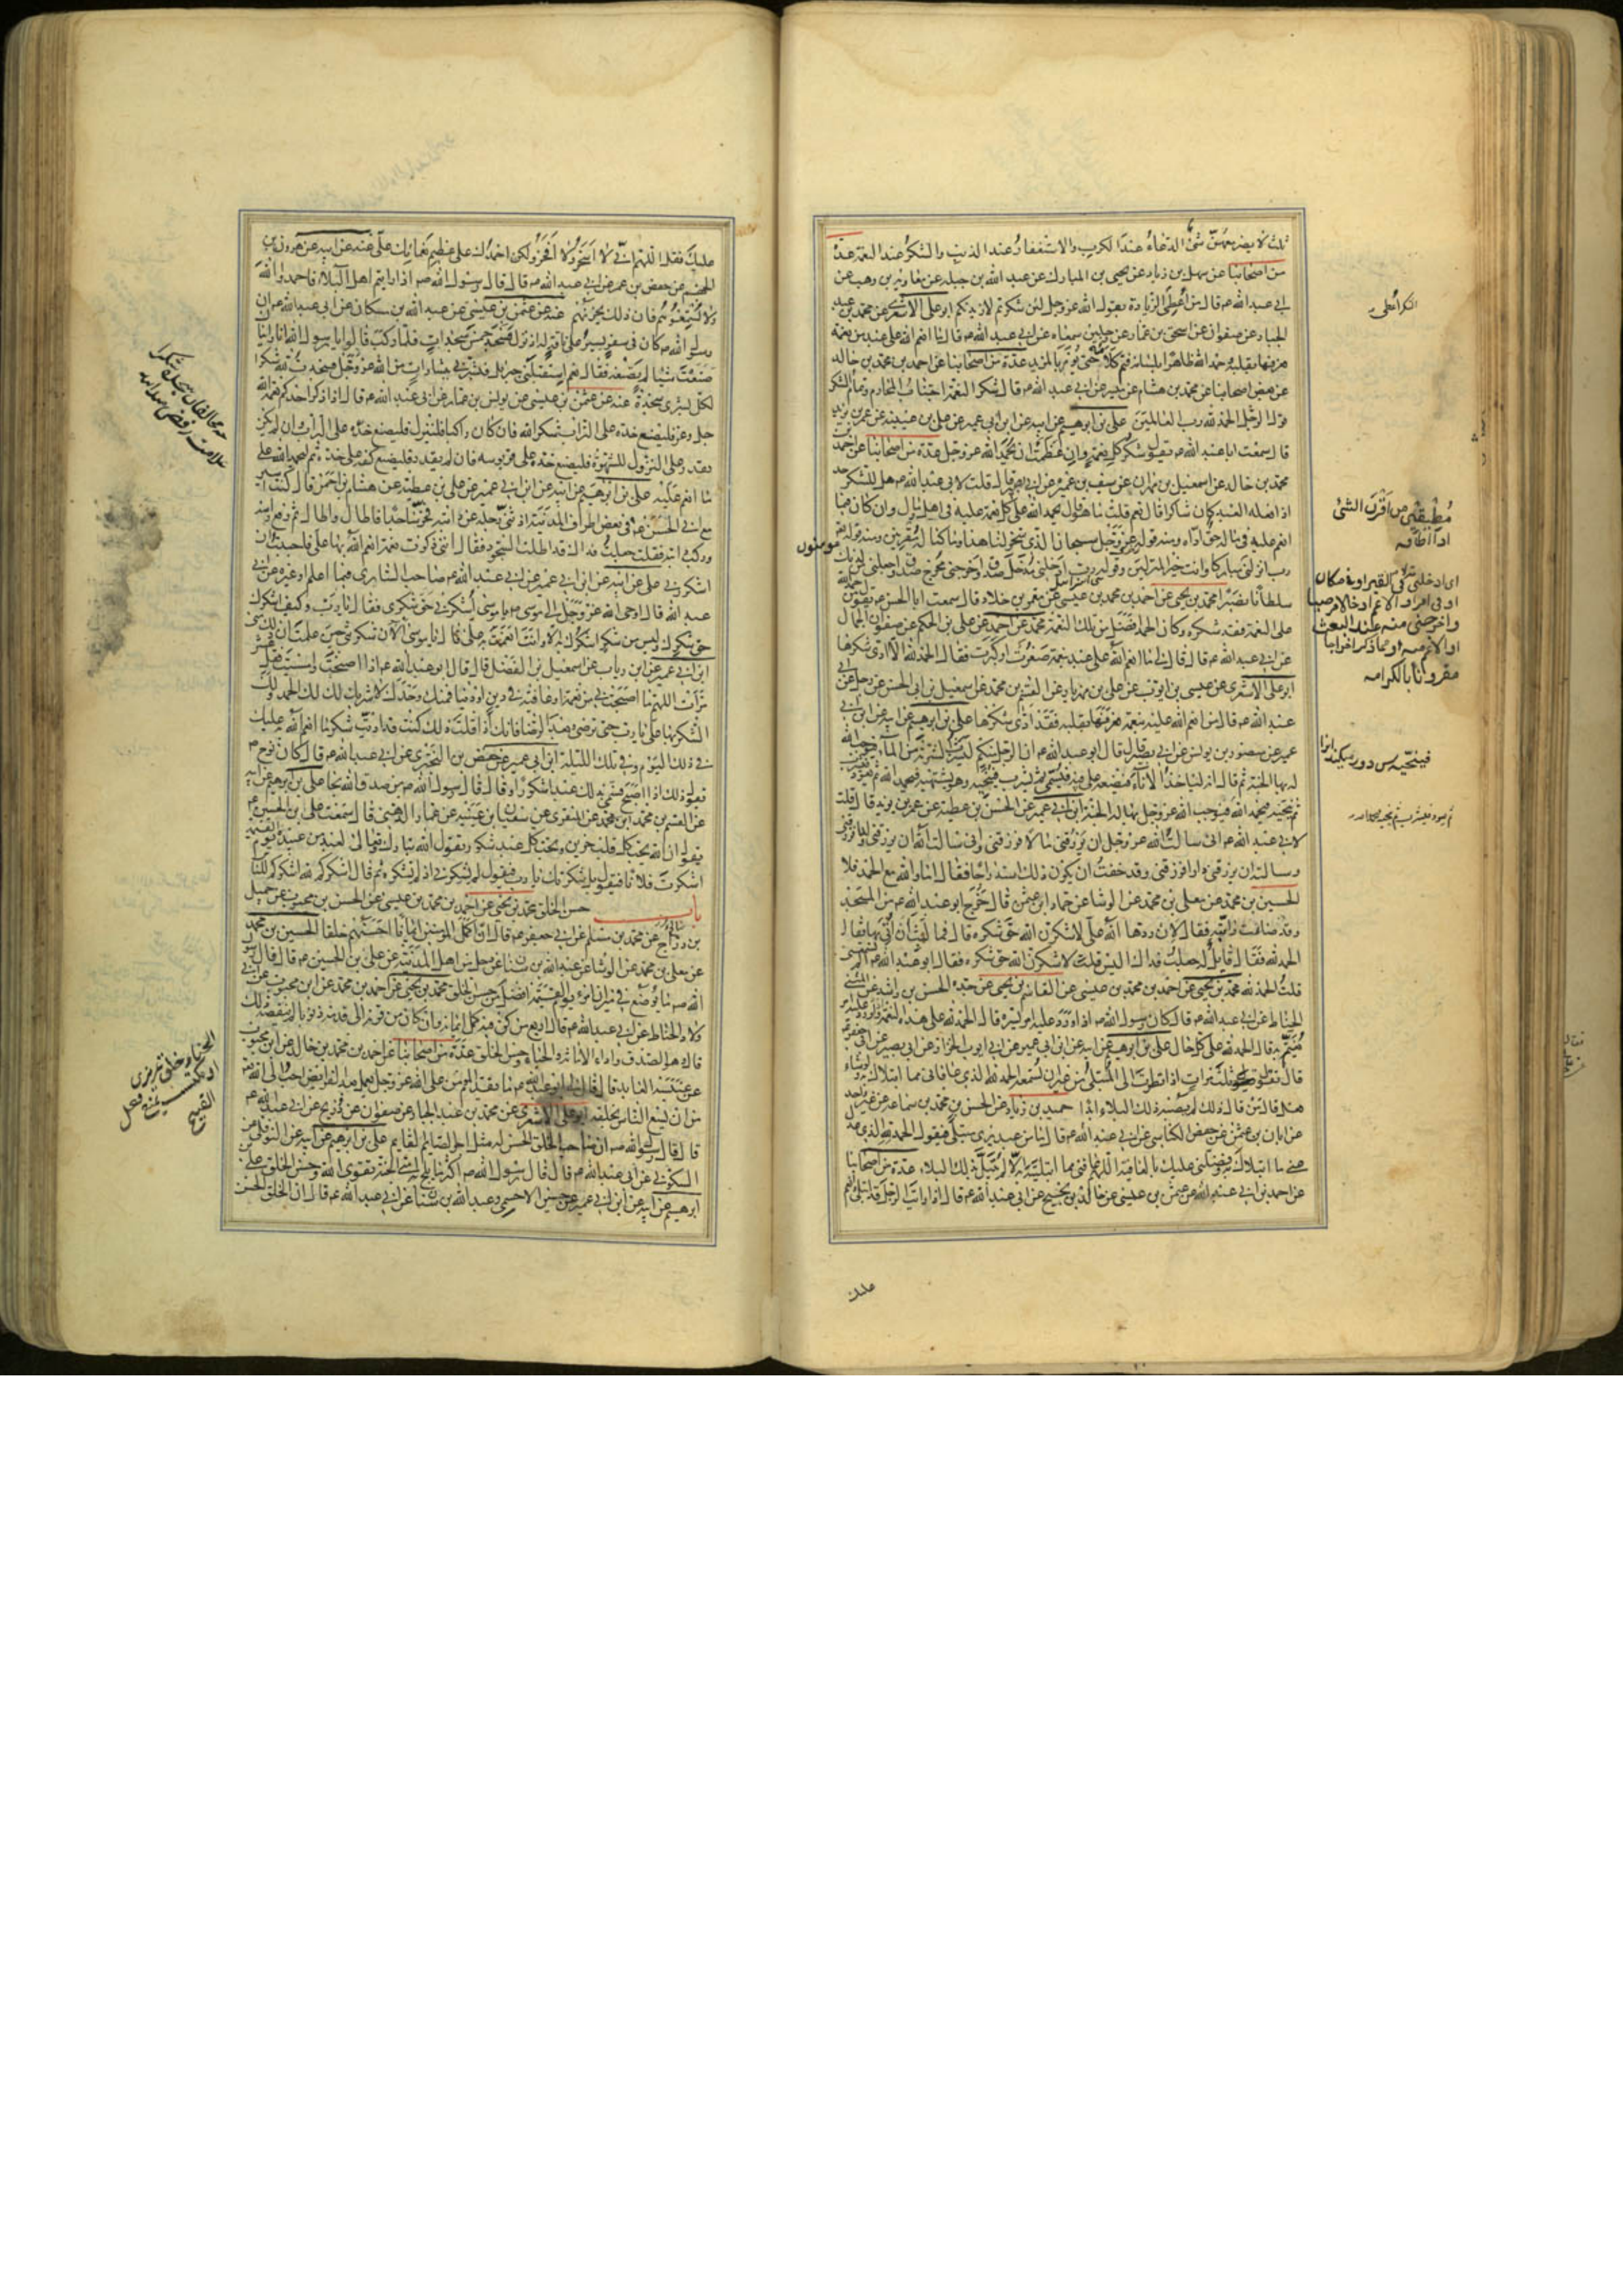 ثلث لا يضر معهن شئ الدعاء عند الكرب والاستغفار عند الذنب والشكر عند النعمة عدة
من اصحابنا عن سهل بن زياد عن يحيى بن المبارك عن عبد الله بن جبله عن معاوية بن وهب عن
ابي عبد الله ع قال من اعطى الشكر اعطى الزيادة يقول الله عز وجل لئن شكرتم لازيدنكم ابو علي الاشعري عن محمد بن عبد
الجبار عن صفوان عن اسحق بن عمار عن رجلين سمعناه عن ابي عبد الله ع قال ما انعم الله على عبد من نعمة
فعرفها بقلبه وحمد الله ظاهرا بلسانه فتم كلامه حتى يؤمر له بالمزيد عدة من اصحابنا عن احمد بن محمد بن خالد
عن بعض اصحابنا عن محمد بن هشام عن ميسر عن ابي عبد الله ع قال شكر النعمة اجتناب المحارم وتمام الشكر
قول الرجل الحمد لله رب العالمين علي بن ابرهيم عن ابيه عن ابن ابي عمير عن علي بن عيينه عن عمر بن يزيد
قال سمعت ابا عبد الله ع يقول شكر كل نعمة وان عظمت ان تحمد الله عز وجل عدة من اصحابنا عن احمد
محمد بن خالد عن اسمعيل بن مهران عن سيف بن عميرة عن ابي بصير قال قلت لابي عبد الله ع هل للشكر حد
اذا فعله العبد كان شاكرا قال نعم قلت ما هو قال يحمد الله على كل نعمة عليه في اهل ومال وان كان فيما
انعم عليه في ماله حق اداه ومنه قوله عز وجل سبحان الذي سخر لنا هذا وما كنا له مقرنين ومنه قوله تعم
رب انزلني منزلا مباركا وانت خير المنزلين وقوله رب ادخلني مدخل صدق واخرجني مخرج صدق واجعلني لي من لدنك
سلطانا نصيرا محمد بن يحيى عن احمد بن محمد بن عيسى عن معمر بن خلاد قال سمعت ابا الحسن ع يقول من حمد الله
على النعمة فقد شكره وكان الحمد افضل من تلك النعمة محمد عن احمد عن علي بن الحكم عن صفوان الجمال
عن ابي عبد الله ع قال قال لي ما انعم الله على عبد بنعمة صغرت او كبرت فقال الحمد لله الا ادى شكرها
ابو علي الاشعري عن عيسى بن ايوب عن علي بن مهزيار عن القسم بن محمد عن اسمعيل بن ابي الحسن عن رجل عن ابي
عبد الله ع قال من انعم الله عليه بنعمة فعرفها بقلبه فقد ادى شكرها علي بن ابرهيم عن ابيه عن ابن ابي
عمير عن منصور بن يونس عن ابي بصير قال قال ابو عبد الله ع ان الرجل منكم ليشرب الشربة من الماء فيوجب الله
له بها الجنة ثم قال انه لياخذ الاناء فيضعه على فيه فيسمى ثم يشرب فينحيه وهو يشتهيه فيحمد الله ثم يعود فيشرب
ثم ينحيه فيحمد الله فيوجب الله عز وجل بها له الجنة ابن ابي عمير عن الحسن بن عطيه عن عمر بن يزيد قال قلت
لابي عبد الله ع اني سالت الله عز وجل ان يرزقني مالا فرزقني واني سالت الله ان يرزقني ولدا فرزقني
وسالته ان يرزقني دارا فرزقني وقد خفت ان يكون ذلك استدراجا فقال اما والله مع الحمد فلا
الحسين بن محمد عن معلى بن محمد عن الوشا عن حماد ابن عثمن قال خرج ابو عبد الله ع من المسجد
وقد ضاعت دابته فقال لان ردها الله علي لاشكرن الله حق شكره قال فما لبث ان اتي بها فقال
الحمد لله فقال قايل له جعلت فداك اليس قلت لاشكرن الله حق شكره فقال ابو عبد الله ع الم تسمعني
قلت الحمد لله محمد بن يحيى عن احمد بن محمد بن عيسى عن القاسم بن يحيى عن جده الحسن بن راشد عن المثنى
الحناط عن ابي عبد الله ع قال كان رسول الله ص اذا ورد عليه امر يسره قال الحمد لله على هذه النعمة واذا ورد عليه امر
يغتم به قال الحمد لله على كل حال علي بن ابرهيم عن ابيه عن ابن ابي عمير عن ابي ايوب الخزاز عن ابي بصير عن ابي جعفر ع
قال تقول ثلث مرات اذا نظرت الى المبتلى من غير ان تسمعه الحمد لله الذي عافاني مما ابتلاك به ولو شاء
فعل قال من قال ذلك لم يصبه ذلك البلاء ابدا حميد بن زياد عن الحسن بن محمد بن سماعه عن غير واحد
عن ابان بن عثمن عن حفص الكناسي عن ابي عبد الله ع قال ما من عبد يرى مبتلى فيقول الحمد لله الذي عدل
عني ما ابتلاك به وفضلني عليك بالعافية اللهم عافني مما ابتليته به الا لم يبتل بذلك البلاء عدة من اصحابنا
عن احمد بن ابي عبد الله عن عثمن بن عيسى عن خالد بن نجيح عن ابي عبد الله ع قال اذا رايت الرجل قد ابتلي وانعم
عليك
مطيقين من اقرن الشئ
اذا اطاقه
اى ادخلني في القبر او في مكان
او في امر او الاعم ادخالا مرضيا
واخرجني منه عند البعث
او الاعم منه او مما ذكر اخراجا
مقرونا بالكرامه
عليك فقل اللهم اني لا اسخر ولا افخر ولكن احمدك على عظيم نعمائك علي عنه عن ابيه عن هرون بن
الجهم عن حفص بن عمر عن ابي عبد الله ع قال قال رسول الله ص اذا رايتم اهل البلاء فاحمدوا الله
ولا تسمعوهم فان ذلك يحزنهم عنه عن عثمن بن عيسى عن عبد الله بن مسكان عن ابي عبد الله ع ان
رسول الله ص كان في سفر يسير على ناقة له اذ نزل فسجد خمس سجدات فلما ركب قالوا يا رسول الله انا رايناك
صنعت شيئا لم تصنعه فقال نعم استقبلني جبرئل فبشرني ببشارات من الله عز وجل فسجدت لله شكرا
لكل بشرى سجدة عنه عن عثمن بن عيسى عن يونس بن عمار عن ابي عبد الله ع قال اذا ذكر احدكم نعمة الله
عز وجل فليضع خده على التراب شكرا لله فان كان راكبا فلينزل فليضع خده على التراب وان لم يكن
يقدر على النزول للشهرة فليضع خده على قربوسه فان لم يقدر فليضع كفه على خده ثم ليحمد الله على
ما انعم عليه علي بن ابرهيم عن ابيه عن ابن ابي عمير عن علي بن عطيه عن هشام بن احمر قال كنت اسير
مع ابي الحسن ع في بعض اطراف المدينة اذ ثنى رجله عن دابته فخر ساجدا فاطال واطال ثم رفع راسه
وركب دابته فقلت جعلت فداك قد اطلت السجود فقال انني ذكرت نعمة انعم الله بها علي فاحببت ان
اشكر ربي علي عن ابيه عن ابن ابي عمير عن ابي عبد الله ع صاحب السابري فيما اعلم او غيره عن ابي
عبد الله قال اوحى الله عز وجل الى موسى ع يا موسى اشكرني حق شكري فقال يا رب وكيف اشكرك
حق شكرك وليس من شكر اشكرك به الا وانت انعمت به علي قال يا موسى الان شكرتني حين علمت ان ذلك مني
ابن ابي عمير عن ابن رياب عن اسمعيل بن الفضل قال قال ابو عبد الله ع اذا اصبحت وامسيت فقل عشر
مرات اللهم ما اصبحت بي من نعمة او عافية في دين او دنيا فمنك وحدك لا شريك لك لك الحمد ولك
الشكر بها علي يا رب حتى ترضى وبعد الرضا فانك اذا قلت ذلك كنت قد اديت شكر ما انعم الله به عليك
في ذلك اليوم وفي تلك الليلة ابن ابي عمير عن حفص بن البختري عن ابي عبد الله ع قال كان نوح ع
يقول ذلك اذا اصبح فسمي بذلك عبدا شكورا وقال قال رسول الله ص من صدق الله نجا علي بن ابرهيم عن ابيه
عن القسم بن محمد عن المنقري عن سفيان بن عيينه عن عمار الدهني قال سمعت علي بن الحسين ع
يقول ان الله يحب كل قلب حزين ويحب كل عبد شكور يقول الله تبارك وتعالى لعبد من عبيده يوم القيمة
اشكرت فلانا فيقول بل شكرتك يا رب فيقول لم تشكرني اذ لم تشكره ثم قال اشكركم لله اشكركم للناس
باب حسن الخلق محمد بن يحيى عن احمد بن محمد بن عيسى عن الحسن بن محبوب عن جميل
بن دراج عن محمد بن مسلم عن ابي جعفر ع قال ان اكمل المؤمنين ايمانا احسنهم خلقا الحسين بن محمد
عن معلى بن محمد عن الوشا عن عبد الله بن سنان عن رجل من اهل المدينة عن علي بن الحسين ع قال قال رسول
الله ص ما يوضع في ميزان امرء يوم القيمة افضل من حسن الخلق محمد بن يحيى عن احمد بن محمد عن ابن محبوب عن ابي
ولاد الحناط عن ابي عبد الله ع قال اربع من كن فيه كمل ايمانه وان كان من قرنه الى قدمه ذنوبا لم ينقصه ذلك
قال وهو الصدق واداء الامانة والحياء وحسن الخلق عدة من اصحابنا عن احمد بن محمد بن خالد عن ابن محبوب
عن عنبسة العابد قال قال لي ابو عبد الله ع ما يقدم المؤمن على الله عز وجل بعمل بعد الفرايض احب الى الله
من ان يسع الناس بخلقه ابو علي الاشعري عن محمد بن عبد الجبار عن صفوان عن ذريح عن ابي عبد الله ع
قال قال رسول الله ص ان صاحب الخلق الحسن له مثل اجر الصايم القايم علي بن ابرهيم عن ابيه عن النوفلي عن
السكوني عن ابي عبد الله ع قال قال رسول الله ص اكثر ما يلج به امتي الجنة تقوى الله وحسن الخلق علي بن
ابرهيم عن ابيه عن ابن ابي عمير عن حسين الاحمسي وعبد الله بن سنان عن ابي عبد الله ع قال ان الخلق الحسن